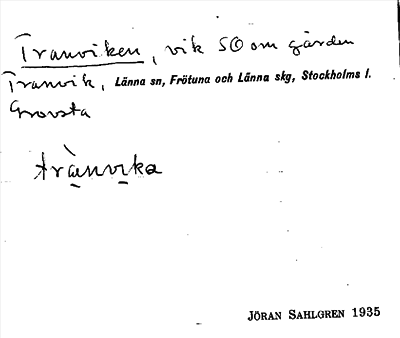 Tranviken, vik SO om gården
Tranvik, Länna sn, Frötuna och Länna skg, Stockholms l.
Grovsta
trànvika
JÖRAN SAHLGREN 1935